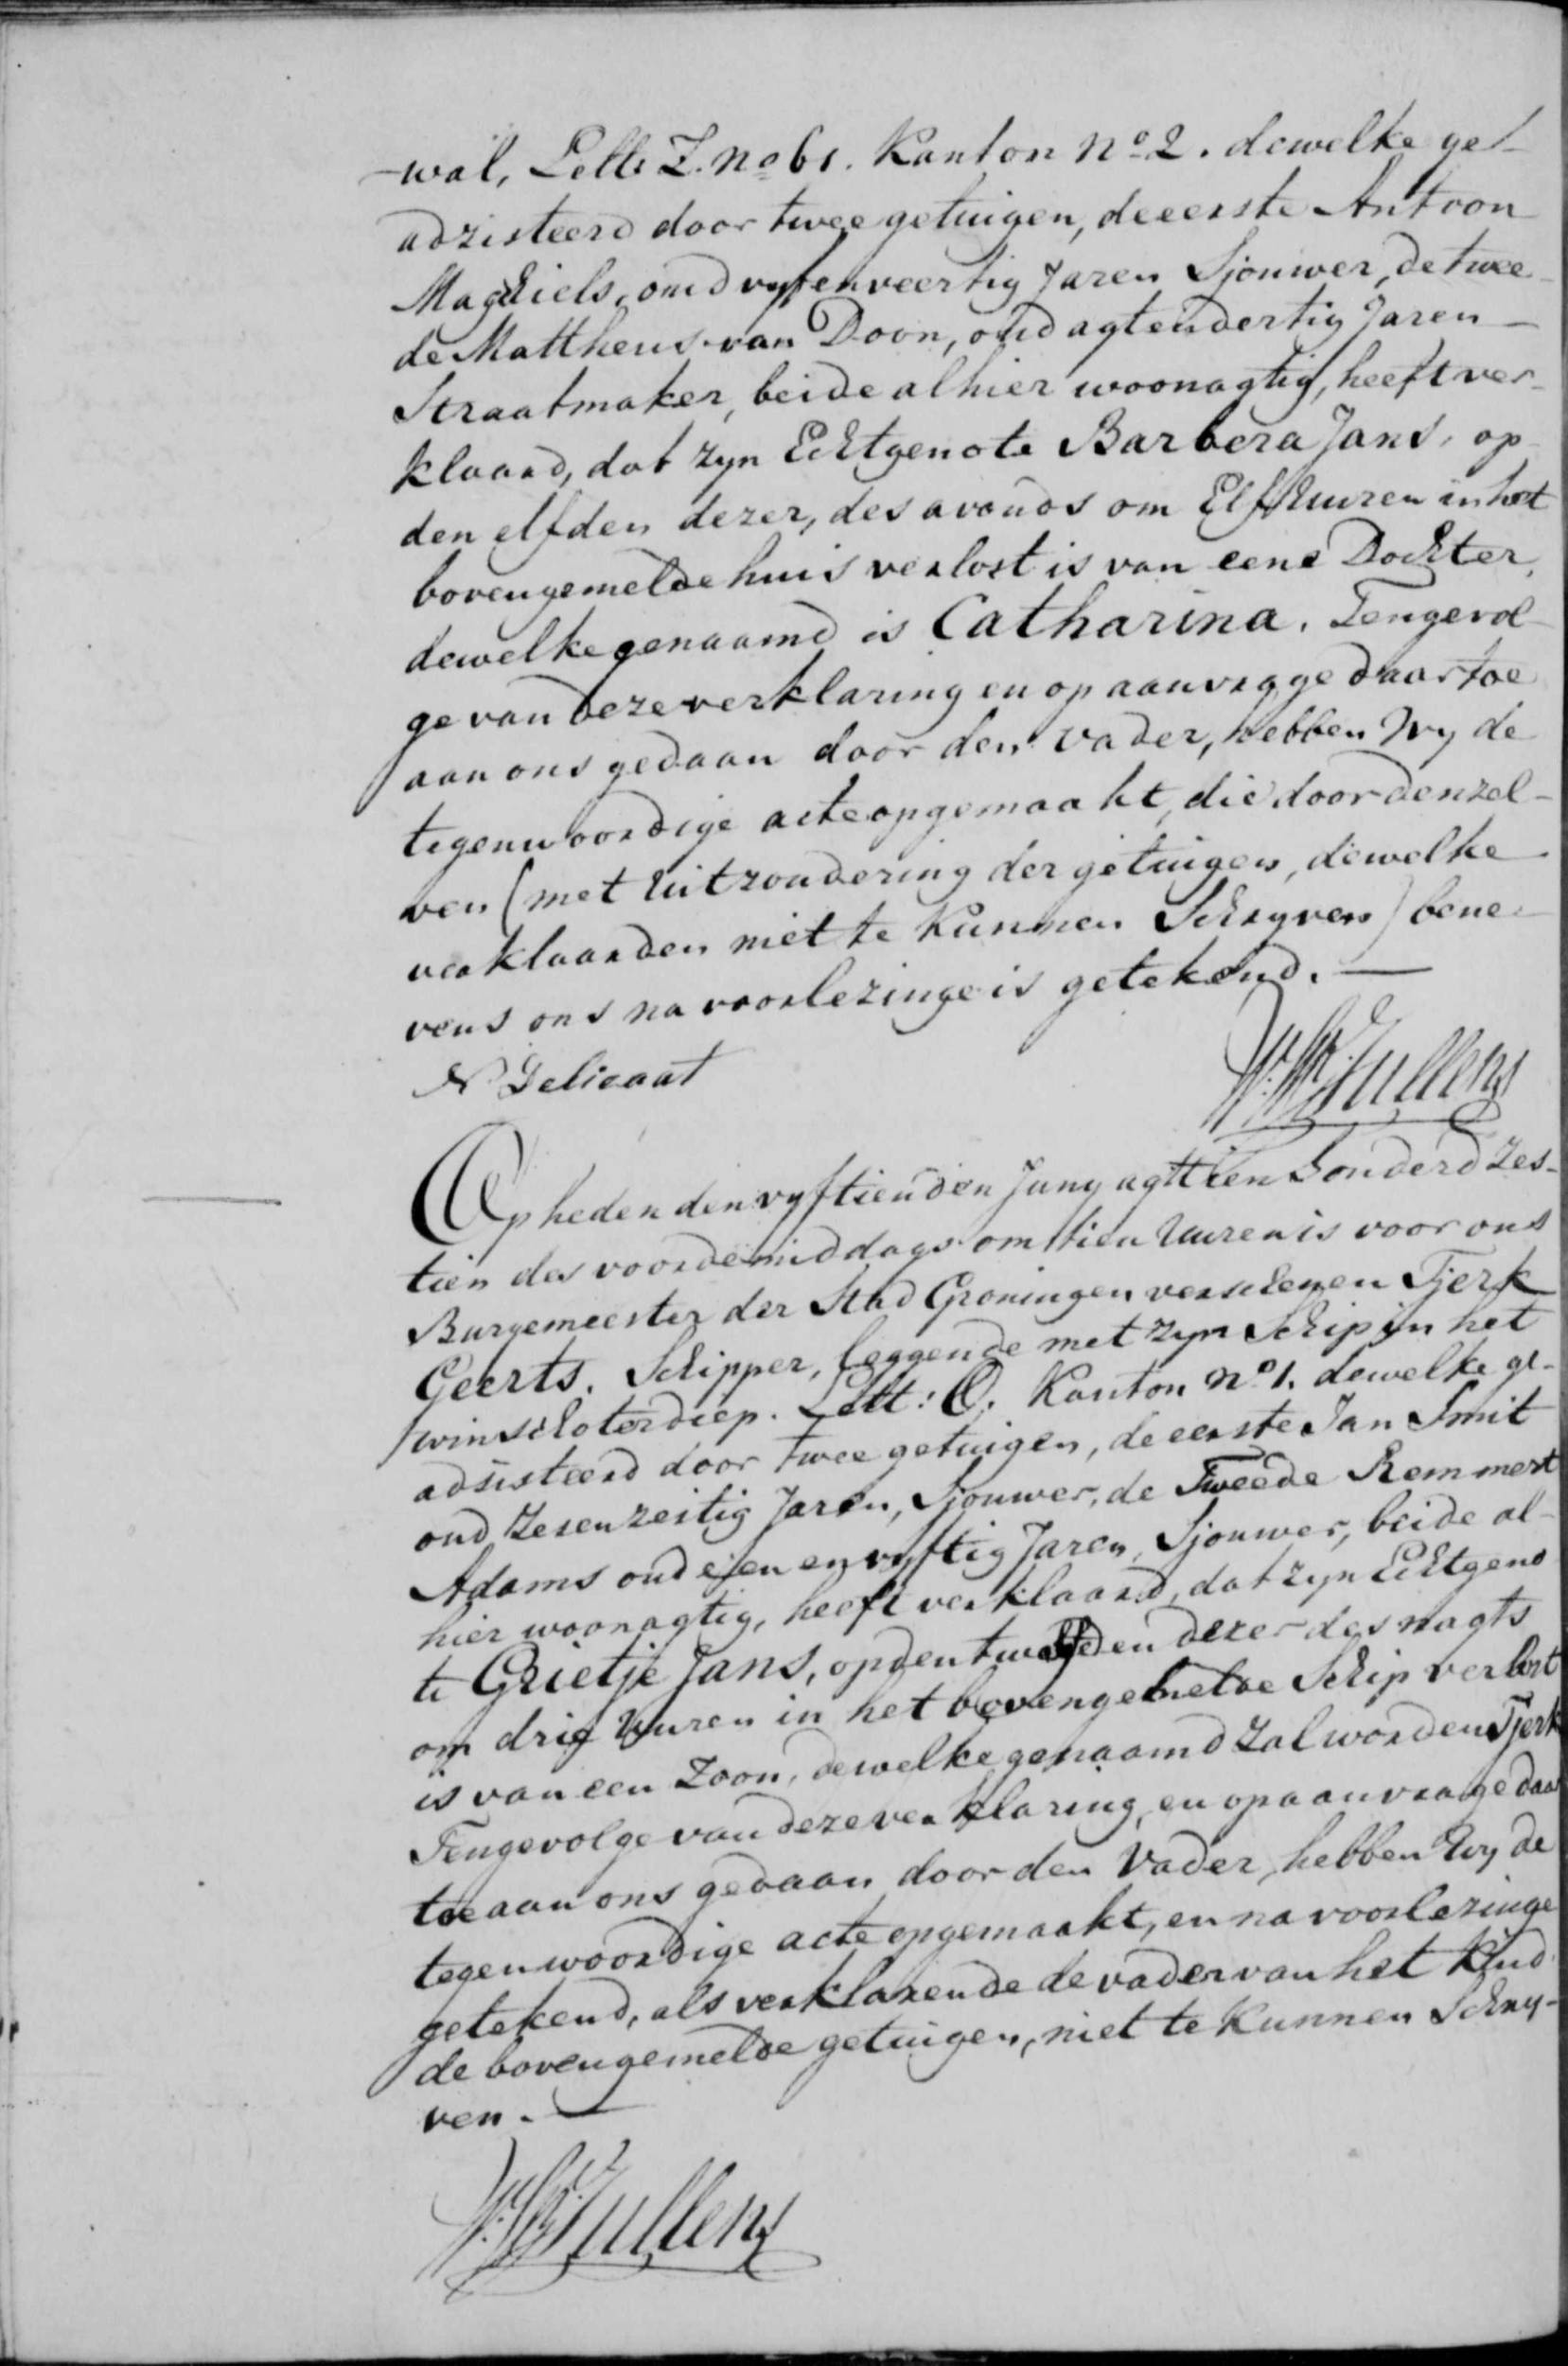 -wal, Lett: Z. no 61. Kanton No 2. dewelke ge-
adzisteerd door twee getuigen, de eerste Antoon
Machiels, oud vyfenveertig Jaren Sjouwer, de twee
de Mattheus van Doorn, oud agtendertig Jaren
Straatmaker, beide alhier woonagtig, heeft ver-
klaard, dat zyn Echtgenote Barbera Jans, op
den elfden dezer, des avonds om Elf Uuren in het
bovengemelde huis verlost is van eene Dochter,
dewelke genaamd is Catharina. Tengevol
ge van deze verklaring en op aanvrage daartoe
aan ons gedaan door den vader, hebben Wy de
tegenwoordige acte opgemaakt, die door denzel-
ven (met Uitzondering der getuigen, dewelke
verklaarden niet te Kunnen Schryven) bene-
vens ons na voorlezinge is getekend. —
N Delicaat

Op heden den vyftienden Juny agttien honderd zes-
tien des voordemiddags om tien Uuren is voor ons
Burgemeester der Stad Groningen verschenen Tjerk
Geerts. Schipper, leggende met zyn Schip in het
winschoterdiep. Lett: O. Kanton No 1. dewelke ge-
adsisteerd door twee getuigen, de eerste Jan Smit
oud Zesenzestig Jaren, Sjouwer, de Tweede Remmert
Adams oud een en vyftig Jaren, Sjouwer, beide al-
hier woonagtig, heeft verklaard, dat zyn Echtgeno
te Grietje Jans, op den twalfden dezer des nagts
om drie Uuren in het bovengemelde Schip verlost
is van een Zoon, dewelke genaamd zal worden Tjerk
Tengevolge van deze verklaring, en op aanvrage daar
toe aan ons gedaan door den Vader, hebben Wy de
tegenwoordige acte opgemaakt, en na voorlezinge
getekend, als verklarende de vader van het Kind
de bovengemelde getuigen, niet te Kunnen Schry-
ven. —